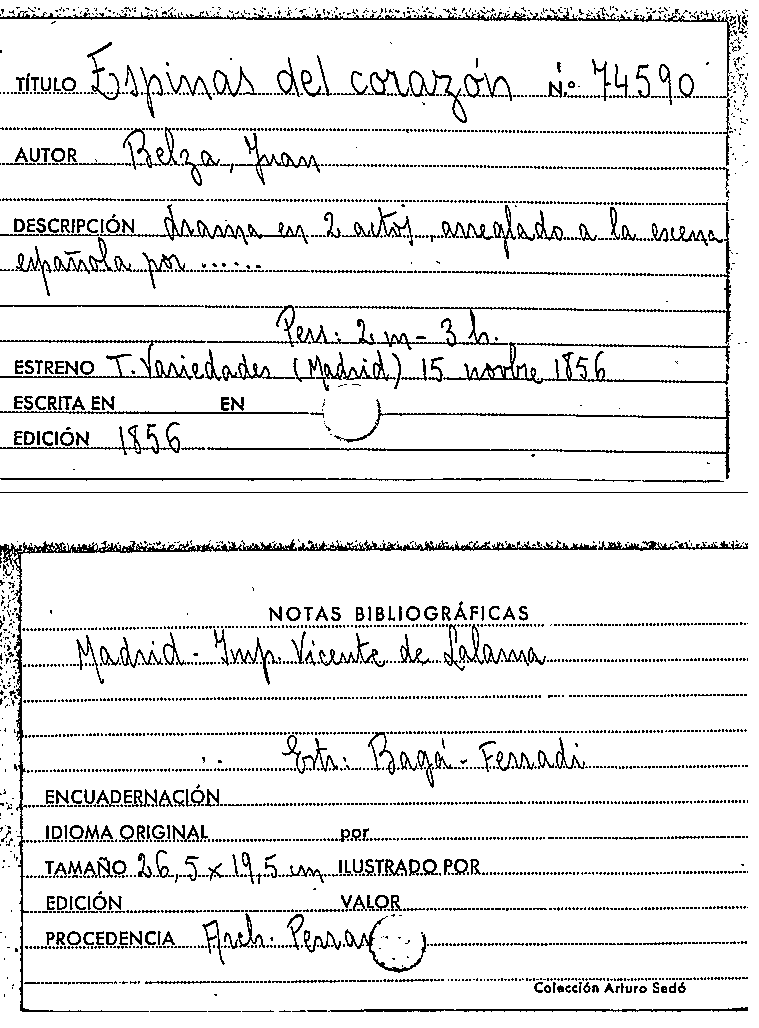 TÍTULO Espinas del corazón N.º 74590
AUTOR Belza, Juan
DESCRIPCIÓN drama en 2 actos, arreglado a la escena
española por ......
Pers: 2 m - 3 h.
ESTRENO T. Variedades (Madrid) 15 novbre 1856
ESCRITA EN EN
EDICIÓN 1856
NOTAS BIBLIOGRÁFICAS
Madrid - Imp. Vicente de Lalama
Estr: Bagá - Ferradi
ENCUADERNACIÓN
IDIOMA ORIGINAL por
TAMAÑO 26,5 x 19,5 cm ILUSTRADO POR
EDICIÓN VALOR
PROCEDENCIA Arch.
Colección Arturo Sedó